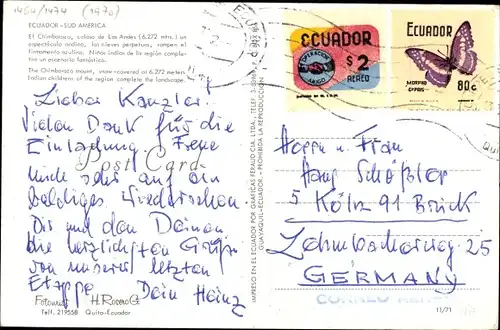 1464/1474 (1970)
ECUADOR - SUD AMERICA
El Chimborazo, coloso de Los Andes (6.272 mts.) un
espectáculo andino, las nieves perpetuas, rompen el
firmamento azulino. Niños indios de la región complementan
un escenario fantástico.
The Chimborazo mount, snow-covered at 6.272 meters
Indian children of the region complete the landscape.
Lieber Kanzler.
Vielen Dank für die
Einladung. Freue
Post Card
mich sehr auf ein
baldiges Wiedersehen.
Dir und den Deinen
die herzlichsten Grüße
von unserer letzten
Etappe Dein Heinz
Fotografía H. Rosero G.
Telf. 219558 Quito-Ecuador
IMPRESO EN EL ECUADOR POR GRAFICAS FERAUD CIA. LTDA., TELF.
GUAYAQUIL-ECUADOR - PROHIBIDA LA REPRODUCCION
ECUADOR
OPERACION
AMIGO
$2
AEREO
ECUADOR
MORPHO
CYPRIS
80c
Herrn u. Frau
Hans Schößler
5 Köln 91 Brück
25
GERMANY
CORREO AEREO
11/71